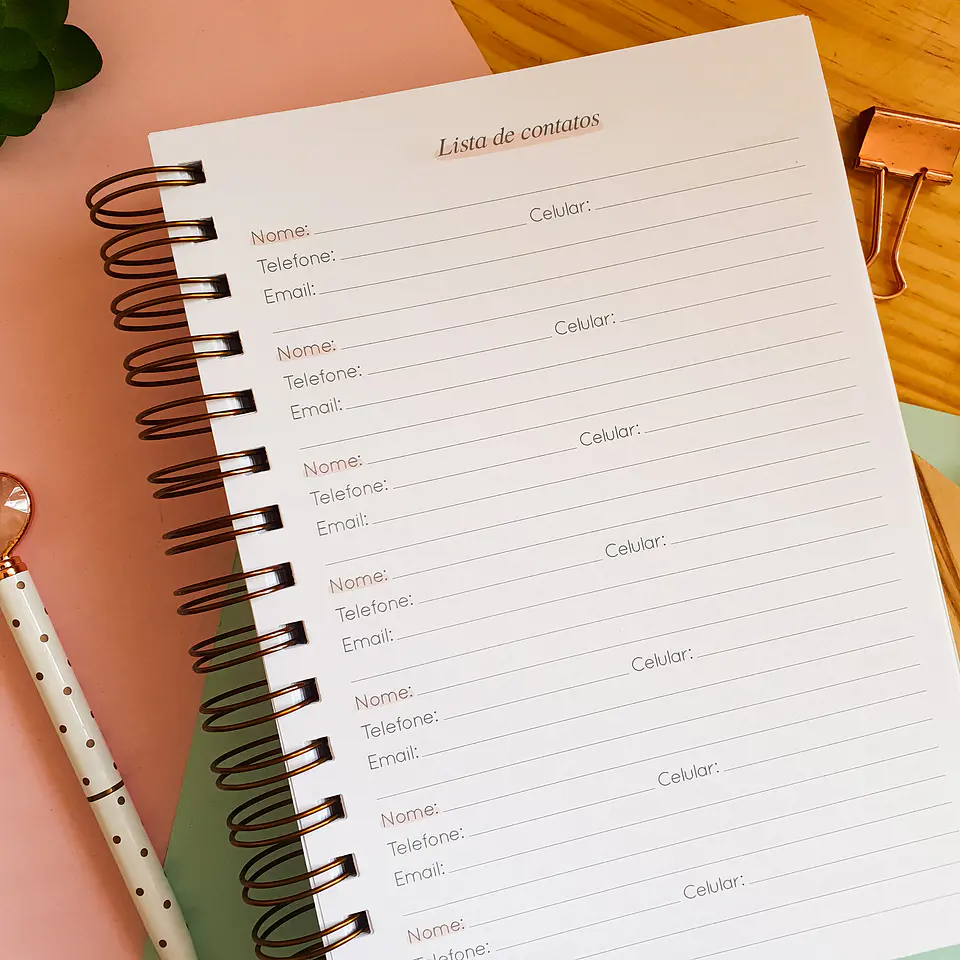 Lista de contatos
Nome:
Telefone: Celular:
Email:
Nome:
Telefone: Celular:
Email:
Nome:
Telefone: Celular:
Email:
Nome:
Telefone: Celular:
Email:
Nome:
Telefone: Celular:
Email:
Nome:
Telefone: Celular:
Email:
Nome:
Telefone: Celular: